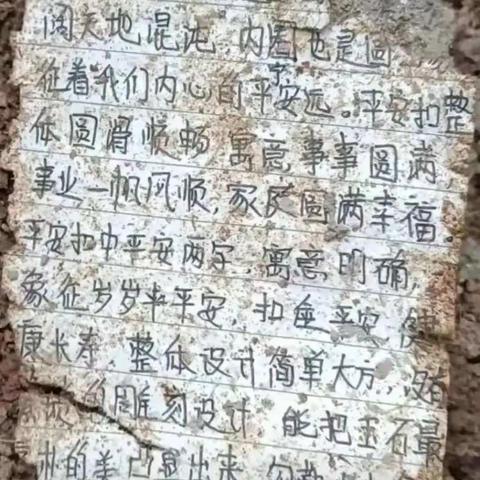 阔天地混沌,内圈也是圆
征着我们内心的平安宁远。平安扣整
体圆滑顺畅 寓意事事圆满,
事业一帆风顺,家庭圆满幸福。
平安扣中平安两字,寓意明确,
象征岁岁年平安,扣座平安 健
康长寿 整体设计简单大方,没有
的雕刻设计 能把玉石最
的美凸显出来